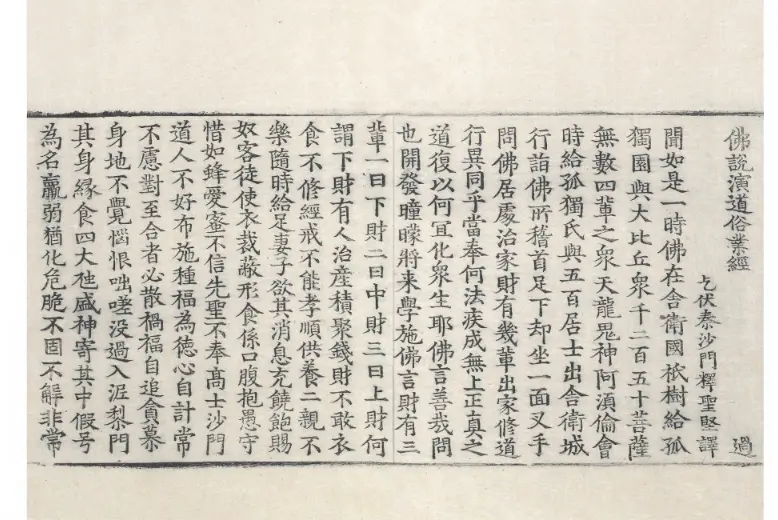 佛說演道俗業經
過
乞伏秦沙門釋聖堅譯
聞如是一時佛在舍衛國祇樹給孤
獨園與大比丘衆千二百五十菩薩
無數四輩之衆天龍鬼神阿須倫會
時給孤獨氏與五百居士出舍衛城
行詣佛所稽首足下却坐一面叉手
問佛居處治家財有幾輩出家修道
行異同乎當奉何法疾成無上正真之
道復以何宜化衆生耶佛言善哉問
也開發曈曚將来學施佛言財有三
輩一曰下財二曰中財三曰上財何
謂下財有人治産積聚錢財不敢衣
食不修經戒不能孝順供養二親不
樂隨時給足妻子欲其消息充饒飽賜
奴客徒使衣裁蔽形食係口腹抱愚守
惜如蜂愛蜜不信先聖不奉高士沙門
道人不好布施種福為德心自計常
不慮對至合者必散禍福自追貪慕
身地不覺惱恨咄嗟没過入泥犁門
其身緣食四大虺盛神寄其中假号
為名羸弱猶化危脆不固不解非常